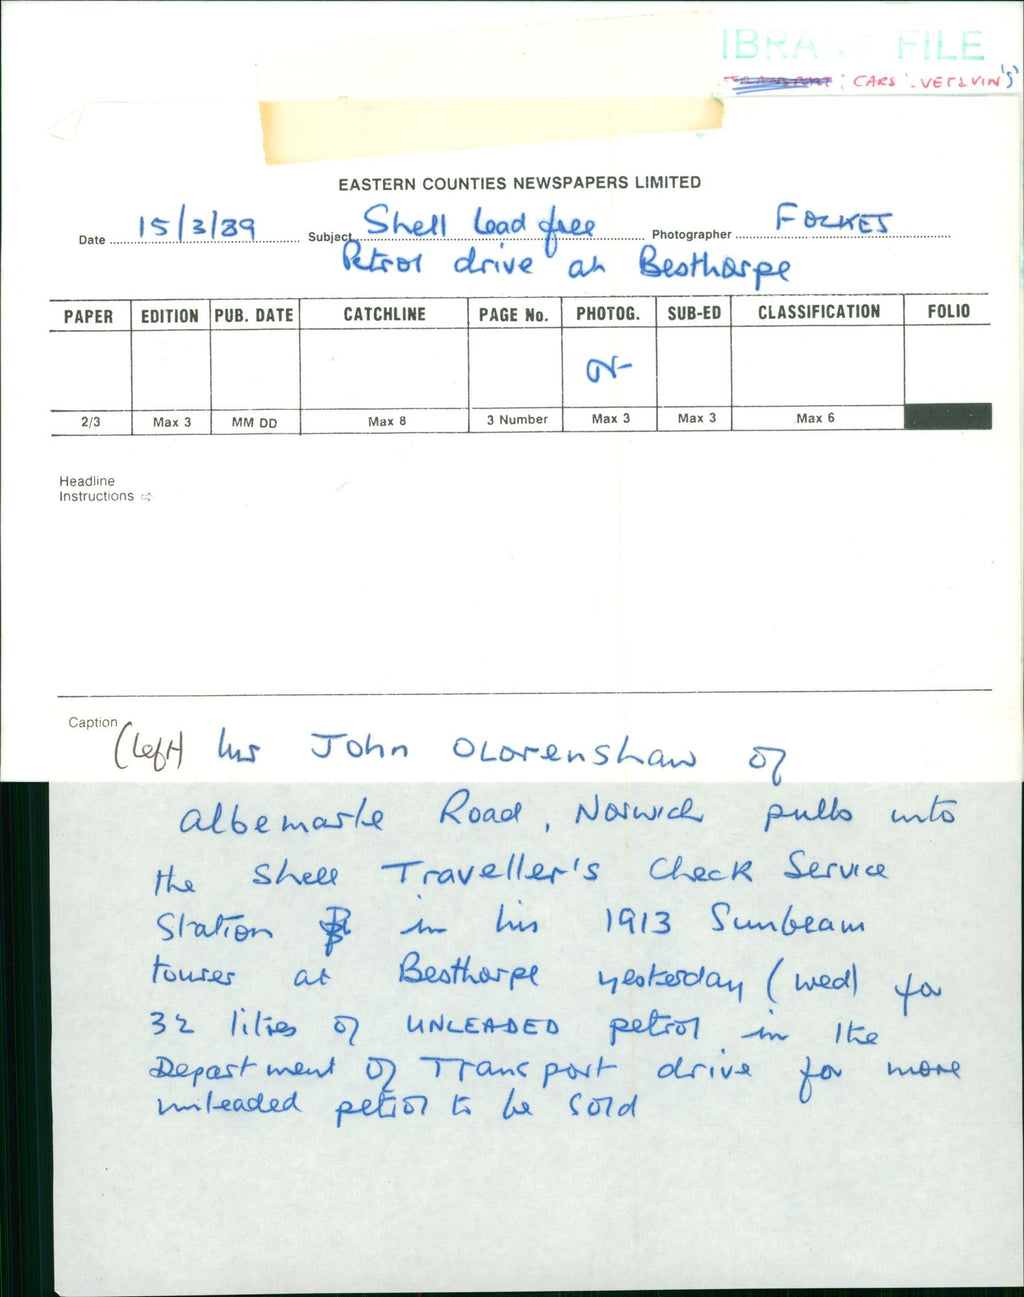 IBRA FILE
TRANSPORT; CARS - VET & VIN'S'
EASTERN COUNTIES NEWSPAPERS LIMITED
Date 15/3/89 Subject Shell lead free Photographer
Petrol drive at Besthorpe
PAPER EDITION PUB. DATE CATCHLINE PAGE No. PHOTOG. SUB-ED CLASSIFICATION FOLIO
2/3 Max 3 MM DD Max 8 3 Number Max 3 Max 3 Max 6
Headline
Instructions ⇨
Caption
(Left) Mr John OLorenshaw of
Albemarle Road, Norwich pulls into
the Shell Traveller's Check Service
Station in his 1913 Sunbeam
tourer at Besthorpe yesterday (wed) for
32 litres of UNLEADED petrol in the
Department of Transport drive for more
unleaded petrol to be sold